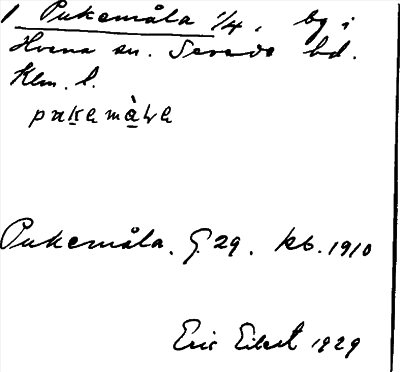 1 Pukemåla 1/4, by i
Hvena sn. Sevede hd.
Klm. l.
Pukemåla. G. 29. kb. 1910
Eric Eibert 1929